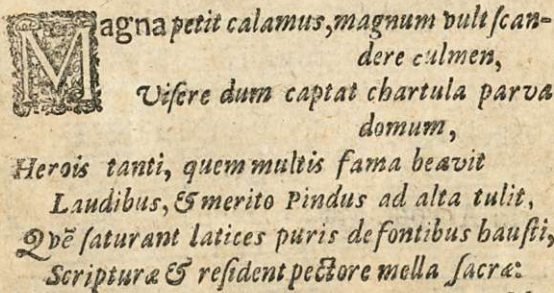 Magna petit calamus, magnum vult ſcan-
dere culmen,
Viſere dum captat chartula parva
domum,
Herois tanti, quem multis fama beavit
Laudibus, & merito Pindus ad alta tulit,
Qvē ſaturant latices puris de fontibus hauſti,
Scripturæ & reſident pectore mella ſacræ: